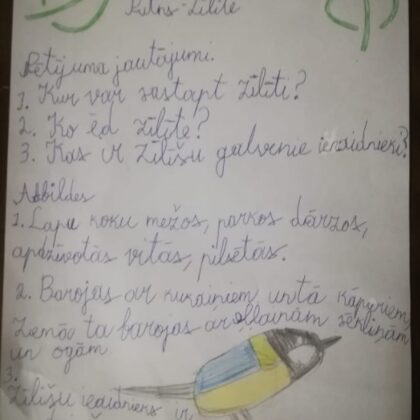 Putns-Zīlīte
Pētījuma jautājumi.
1. Kur var sastapt zīlīti?
2. Ko ēd zīlīte?
3. Kas ir zīlīšu galvenie ienaidnieki?
Atbildes
1. Lapu koku mežos, parkos dārzos,
apdzīvotās vitās, pilsētās.
2. Barojas ar kukaiņiem untā kāpuriem
Ziemā ta barojas ar eļļainām sēkliņām
un ogām
3.
Zīlīšu iedaidnieks ir